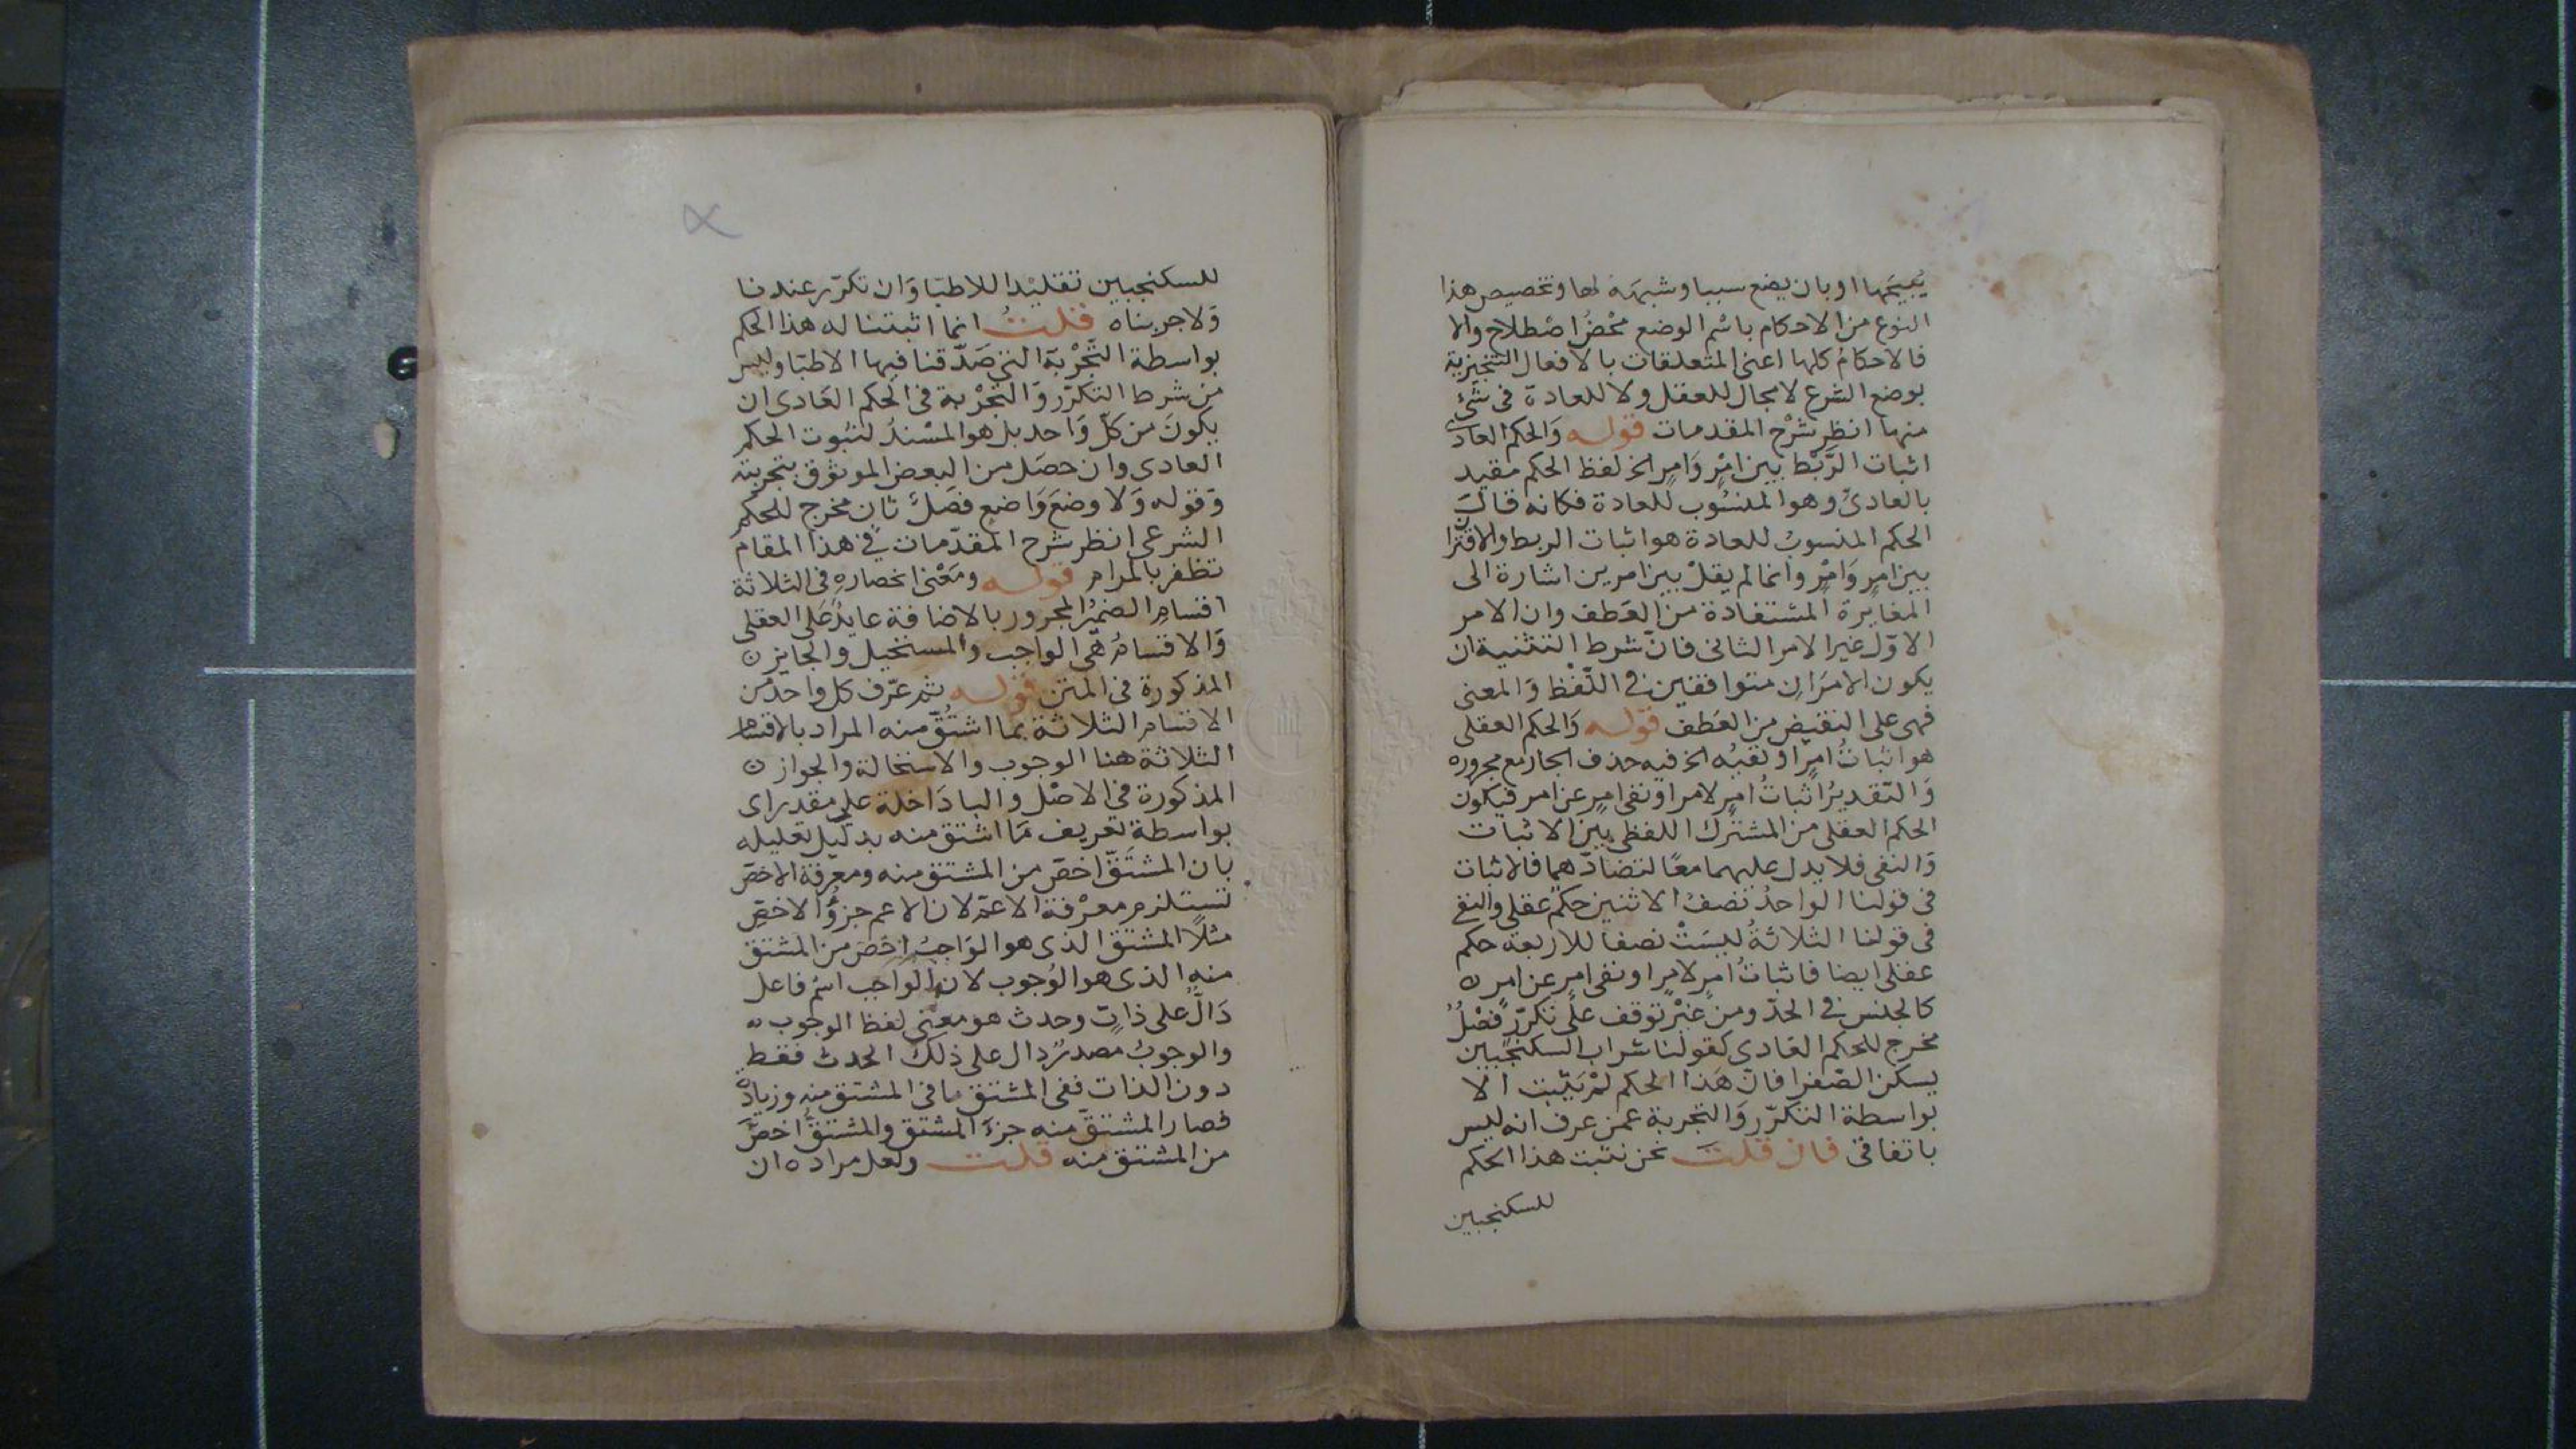 يُبيحَها او بان يضع سببا وشبهه لها وتخصيص هذا
النوع من الاحكام باسم الوضع محْضُ اصْطلاح والا
فالاحكامُ كلها اعنى المتعلقات بالافعال التنجيزية
بوضع الشرع لا مجال للعقل ولا للعادة فى شئ
منها انظر شرْح المقدمات قوله وَالحكم العادى
اثبات الرَّبْط بين امْرٍ وَامرٍ الخ لفظ الحكم مقيد
بالعادىّ وهو المنسُوب للعادة فكانه قالَ
الحكم المنسوبُ للعادة هو اثبات الربط والاقترا
بين امرٍ وَامْرٍ وانما لم يقلْ بين امرين اشارة الى
المغايرة المستفادة من العَطف وان الامر
الاوّل غير الامر الثانى فانّ شرط التثنية ان
يكون الامرَانِ متوافقين فى اللّفْظ وَالمعنى
فهى على النقيض من العَطف قوله وَالحكم العقلى
هو اثباتُ امرٍ او نفيُه الخ فيه حذف الجار مع مجروره
وَالتّقديرُ اثباتُ امرٍ لامر او نفى امرٍ عن امر فيكون
الحكم العقلى من المشترك اللفظى بين الاثبات
وَالنفى فلا يدل عليهما معًا لتضادّهما فالاثبات
فى قولنا الواحدُ نصفُ الاثنين حكمٌ عقلى والنفى
فى قولنا الثلاثةُ ليسَتْ نصفا للاربعه حكم
عقلى ايضا فاثباتُ امرٍ لامرٍ او نفى امرٍ عن امر
كالجنس فى الحدّ ومن غيْر توقف على تكرّرٍ فصْلُ
مخرج للحكم العَادى كقولنا شراب السكنجبين
يسكن الصّفرا فانّ هَذا الحكم لمْ يَثبت الا
بواسطة التكرّر وَالتجربة عمن عرف انه ليس
باتفاقى فان قلتَ نحن نثبت هذا الحكم
للسكنجبين
للسكنجبين تقليْدا للاطبّا وَان تكرّر عندنا
وَلا جربناه قلتُ انما اثبتنا له هذا الحكم
بواسطة التَّجْرْبَة التى صَدّقنا فيها الاطبّا وليس
من شرط التكرّر وَالتجْربة فى الحكم العَادى ان
يكونَ من كلّ وَاحد بل هو المسْندُ لثبُوت الحكم
العادى وان حصَل من البعض الموثوق بتجربته
وَقوله وَلا وضعَ وَاضعٍ فصَلٌ ثانٍ مخرج للحكم
الشرعى انظر شرح المقدّمات فى هذا المقام
تظفر بالمرام قوله ومَعْنى انحصارهِ فى الثلاثة
اقسام الضميُر المجرور بالاضافة عايدٌ على العقلى
وَالاقسامُ هى الواجب والمستحيل والجايز
المذكورة فى المتن قوله ثم عرّف كل واحد من
الاقسام الثلاثة بما اشتُقَّ منه المراد بالاقسام
الثلاثة هنا الوجوب والاستحالة والجواز
المذكورة فى الاصْل والبا دَاخلة على مقدر اى
بواسطة تعريف مَا اشتق منه بدليْل تعليله
بان المشتَقّ اخصّ من المشتق منه ومعرفة الاخصّ
تستلزم معرْفة الاعمّ لان الاعم جزؤُ الاخصّ
مثلًا المشتق الذى هو الوَاجبُ اخصّ من المشتق
منه الذى هو الوُجوب لان الواجب اسْم فاعل
دَالٌّ على ذاتٍ وحدث هو معنى لفظ الوجوب
والوجوبُ مصدرٌ دال على ذلكَ الحدث فقط
دون الذات ففى المشتق ما فى المشتق منه وزيادة
فصار المشتقّ منه جزءَ المشتق والمشتقُّ اخصّ
من المشتق منه قلت ولعل مراده ان